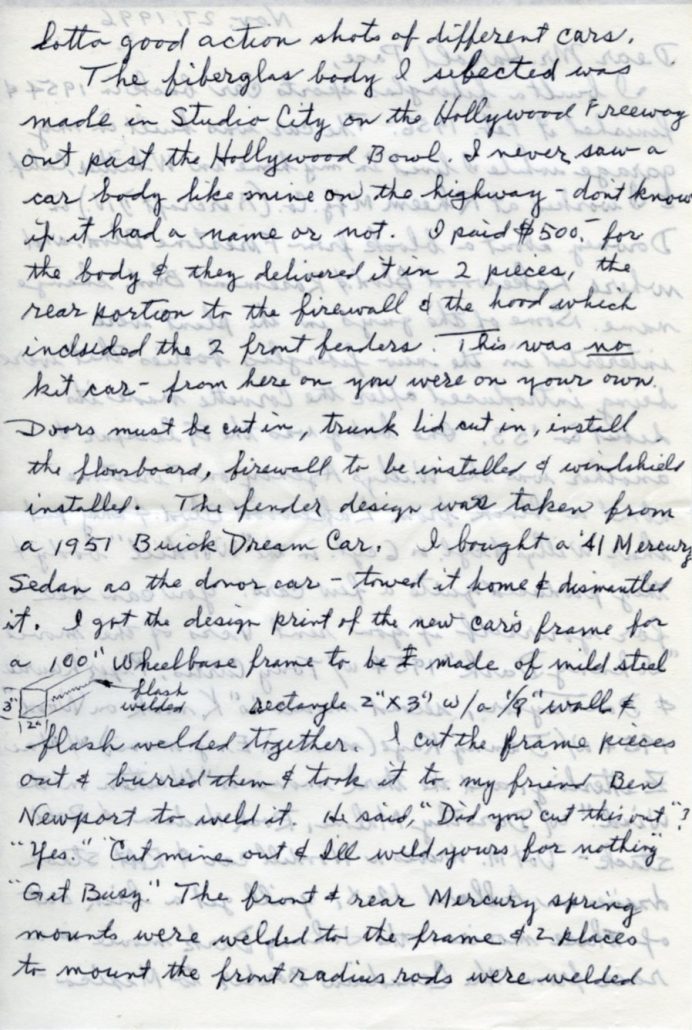 lotta good action shots of different cars.
The fiberglas body I selected was
made in Studio City on the Hollywood Freeway
out past the Hollywood Bowl. I never saw a
car body like mine on the highway - dont know
if it had a name or not. I paid $500.- for
the body & they delivered it in 2 pieces, the
rear portion to the firewall & the hood which
inclsided the 2 front fenders. This was no
kit car - from here on you were on your own.
Doors must be cut in, trunk lid cut in, install
the floorboard, firewall to be installed & windshield
installed. The fender design was taken from
a 1951 Buick Dream Car. I bought a '41 Mercury
Sedan as the donor car - towed it home & dismantled
it. I got the design print of the new car's frame for
a 100" Wheelbase frame to be made of mild steel
3" 2" flash welded rectangle 2" X 3" w/a 1/8" wall &
flash welded together. I cut the frame pieces
out & burred them & took it to my friend Ben
Newport to weld it. He said, "Did you cut this out"?
"Yes." "Cut mine out & I'll weld yours for nothing"
"Get Busy." The front & rear Mercury spring
mounts were welded to the frame & 2 places
to mount the front radius rods were welded